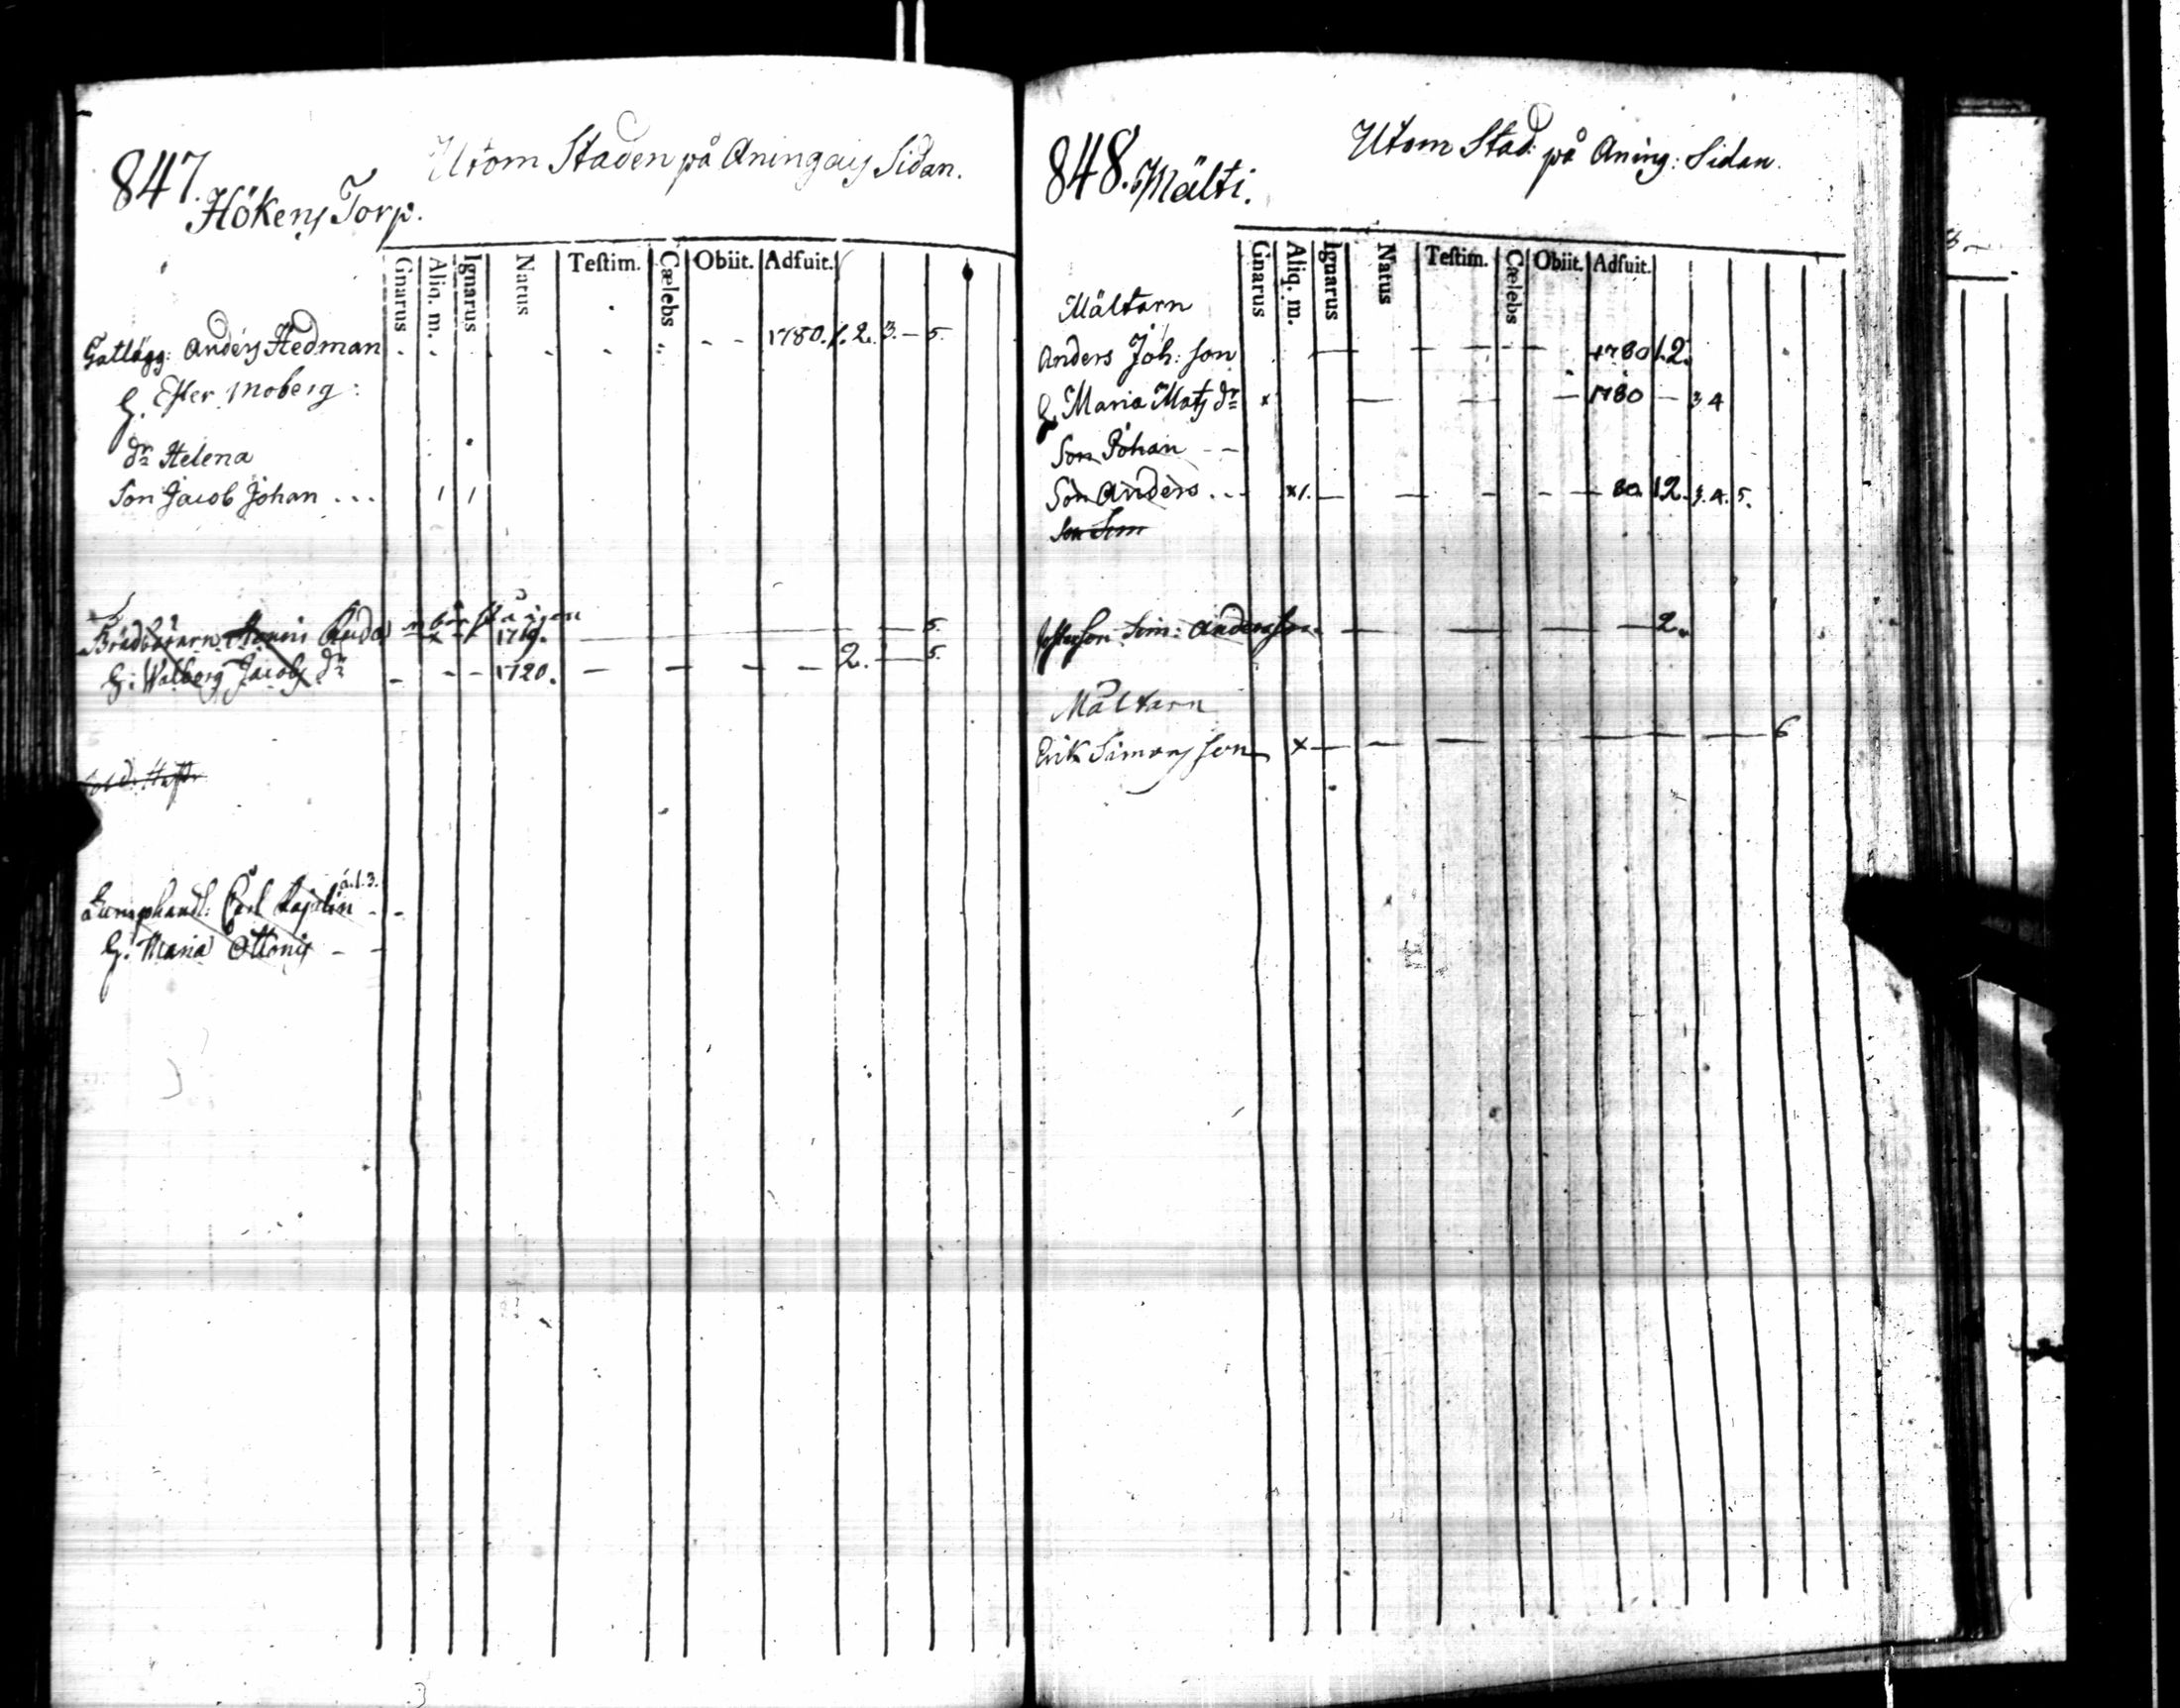 847.
Utom Staden på Aningais Sidan.
Hökens Torp.
Gnarus Aliq. m. Ignarus Natus Testim. Cælebs Obiit. Adfuit.
Gatlägg: Anders Hedman 1780. 1. 2. 3. — 5.
H. Ester Moberg:
dr Helena
Son Jacob Johan ... 1 1
1719. — 5.
H: Walborg Jacobs dr - - - 1720. — — — — 2. — 5.
á. 1. 3.
Lumphandl: Carl Kajalin - -
H. Maria Ottonis - -
848. Mälti.
Utom Stad: på Aning: Sidan.
Gnarus Aliq. m. Ignarus Natus Testim. Cælebs Obiit. Adfuit.
Mältarn
Anders Joh: son — — — — 1780 1. 2.
H. Maria Mats dr x — — — 1780 — 3 4
Son Johan - -
Son Anders .. - x1. — — — — — 80. 1 2. 3. 4. 5.
Son Sim
Sim: Andersson. — — — — — 2.
Mältarn
Erik Simons son x — — — — — — — 6